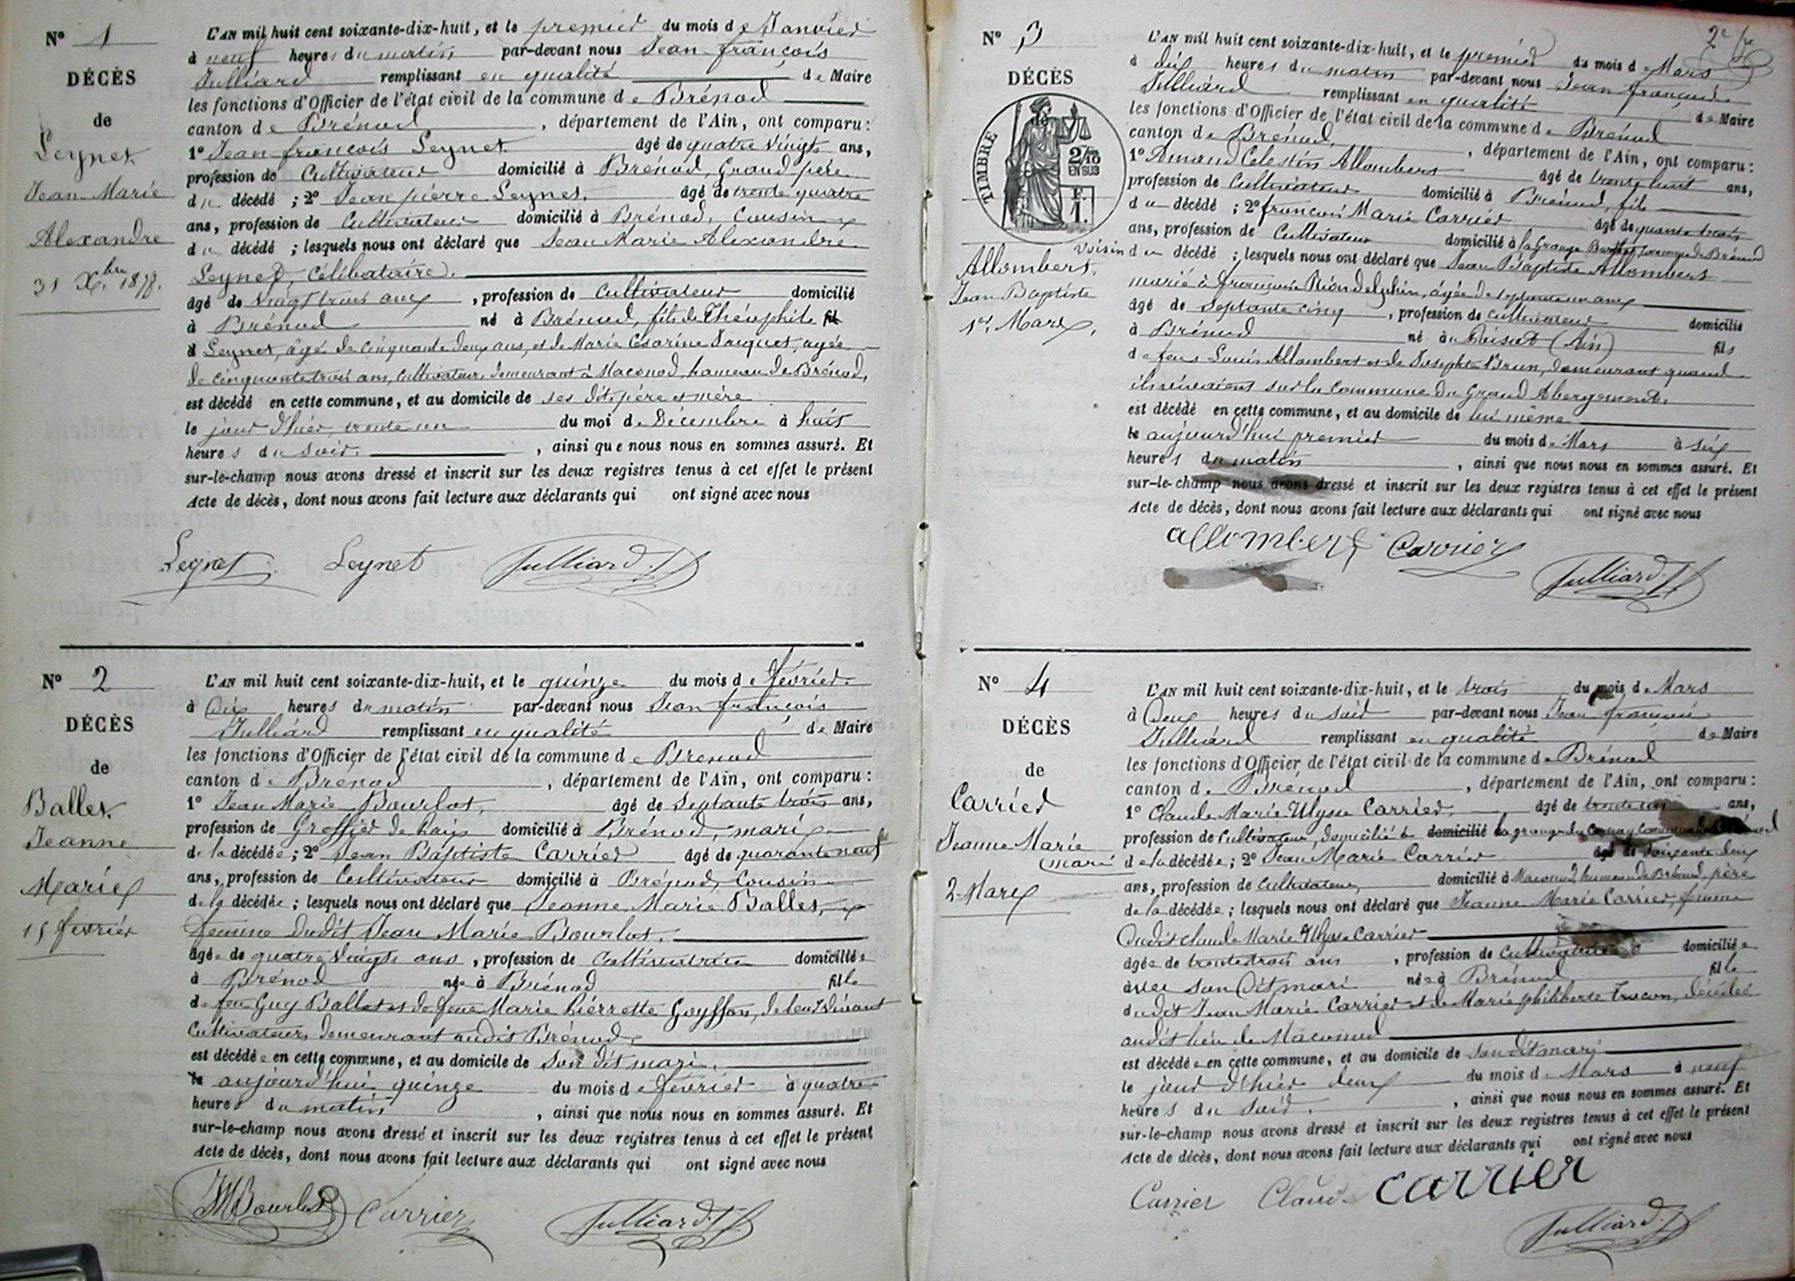 N° 1
DÉCÈS
de
Leynet
Jean Marie
Alexandre
31 Xbre 1877.
L'AN mil huit cent soixante-dix-huit, et le premier du mois de Janvier
à neuf heures du matin par-devant nous Jean françois
Julliard remplissant en qualité de Maire
les fonctions d'Officier de l'état civil de la commune de Brénod
canton de Brénod, département de l'Ain, ont comparu :
1° Jean françois Leynet âgé de quatre vingts ans,
profession de Cultivateur domicilié à Brénod, Grand père
du décédé ; 2° Jean pierre Leynet, âgé de trente quatre
ans, profession de Cultivateur domicilié à Brénod, Cousin
du décédé ; lesquels nous ont déclaré que Jean Marie Alexandre
Leynet, célibataire.
âgé de vingt trois ans, profession de Cultivateur domicilié
à Brénod né à Brénod, fils de Théophile fils
d Leynet, âgé de cinquante deux ans, et de Marie Césarine Jacquet, agée
de cinquante trois ans, Cultivateurs demeurant à Maconod, hameau de Brénod,
est décédé en cette commune, et au domicile de ses dits père et mère
le jour d'hier, trente un du moi de Décembre à huit
heures du soir, ainsi que nous nous en sommes assuré. Et
sur-le-champ nous avons dressé et inscrit sur les deux registres tenus à cet effet le présent
Acte de décès, dont nous avons fait lecture aux déclarants qui ont signé avec nous
Leynet Leynet Julliard J.f.
N° 2
DÉCÈS
de
Ballet
Jeanne
Marie
15 février
L'AN mil huit cent soixante-dix-huit, et le quinze du mois de février
à Dix heures du matin par-devant nous Jean françois
Julliard remplissant en qualité de Maire
les fonctions d'Officier de l'état civil de la commune de Brenod
canton de Brénod, département de l'Ain, ont comparu :
1° Jean Marie Bourlot, âgé de septante trois ans,
profession de Greffier de paix domicilié à Brénod, mari
de la décédée ; 2° Jean Baptiste Carrier âgé de quarante neuf
ans, profession de Cultivateur domicilié à Brénod, Cousin
de la décédée ; lesquels nous ont déclaré que Jeanne Marie Ballet,
femme dudit Jean Marie Bourlot.
âgée de quatre vingts ans, profession de Cultivatrice domiciliée
à Brénod née à Brénod fille
de feu Guy Ballet et de feue Marie Pierrette Goyffon, de leur vivant
Cultivateurs demeurant audit Brénod,
est décédée en cette commune, et au domicile de son dit mari.
le aujourd'hui quinze du mois de février à quatre
heures du matin, ainsi que nous nous en sommes assuré. Et
sur-le-champ nous avons dressé et inscrit sur les deux registres tenus à cet effet le présent
Acte de décès, dont nous avons fait lecture aux déclarants qui ont signé avec nous
JMBourlot Carrier Julliard J.f.
2e
N° 3
DÉCÈS
TIMBRE
2/10
EN SUS
F.
1.
Allombert
Jean Baptiste
1er Mars,
L'AN mil huit cent soixante-dix-huit, et le premier du mois de Mars
à dix heures du matin par-devant nous Jean françois
Julliard remplissant en qualité de Maire
les fonctions d'Officier de l'état civil de la commune de Brénod
canton de Brénod, département de l'Ain, ont comparu :
1° Amand Celestin Allombert âgé de trente huit ans,
profession de Cultivateur domicilié à Brénod, fils
du décédé ; 2° françois Marie Carrier âgé de quarante trois
ans, profession de Cultivateur domicilié à la Grange commune de Brénod
voisin du décédé ; lesquels nous ont déclaré que Jean Baptiste Allombert
marié à françoise Riondelphin, âgée de septante un ans
âgé de septante cinq, profession de Cultivateur domicilié
à Brénod né à (Ain) fils
de feus Louis Allombert et de Josephte Brun, demeurant quand
ils vivaient sur la commune du Grand Abergement.
est décédé en cette commune, et au domicile de lui même
le aujourd'hui premier du mois de Mars à six
heures du matin, ainsi que nous nous en sommes assuré. Et
sur-le-champ nous avons dressé et inscrit sur les deux registres tenus à cet effet le présent
Acte de décès, dont nous avons fait lecture aux déclarants qui ont signé avec nous
allombert Carrier
Julliard J.f.
N° 4
DÉCÈS
de
Carrier
Jeanne Marie
2 Mars
L'AN mil huit cent soixante-dix-huit, et le trois du mois de Mars
à Deux heures du soir par-devant nous Jean françois
Julliard remplissant en qualité de Maire
les fonctions d'Officier de l'état civil de la commune de Brénod
canton de Brénod, département de l'Ain, ont comparu :
1° Claude Marie Ulysse Carrier, âgé de trente ans,
profession de Cultivateur, domicilié à domicilié la grange du
mari de la décédée ; 2° Jean Marie Carrier âgé de soixante deux
ans, profession de Cultivateur domicilié à Maconod, hameau de Brénod, père
de la décédée ; lesquels nous ont déclaré que Jeanne Marie Carrier, femme
dudit Claude Marie Ulysse Carrier
âgée de trente trois ans, profession de Cultivatrice domiciliée
avec son dit mari née à Brénod fille
dudit Jean Marie Carrier et de Marie philiberte Trocon, décédée
audit lieu de Maconod
est décédée en cette commune, et au domicile de son dit mari
le jour d'hier deux du mois de Mars à neuf
heures du soir, ainsi que nous nous en sommes assuré. Et
sur-le-champ nous avons dressé et inscrit sur les deux registres tenus à cet effet le présent
Acte de décès, dont nous avons fait lecture aux déclarants qui ont signé avec nous
Carrier Claude carrier
Julliard J.f.